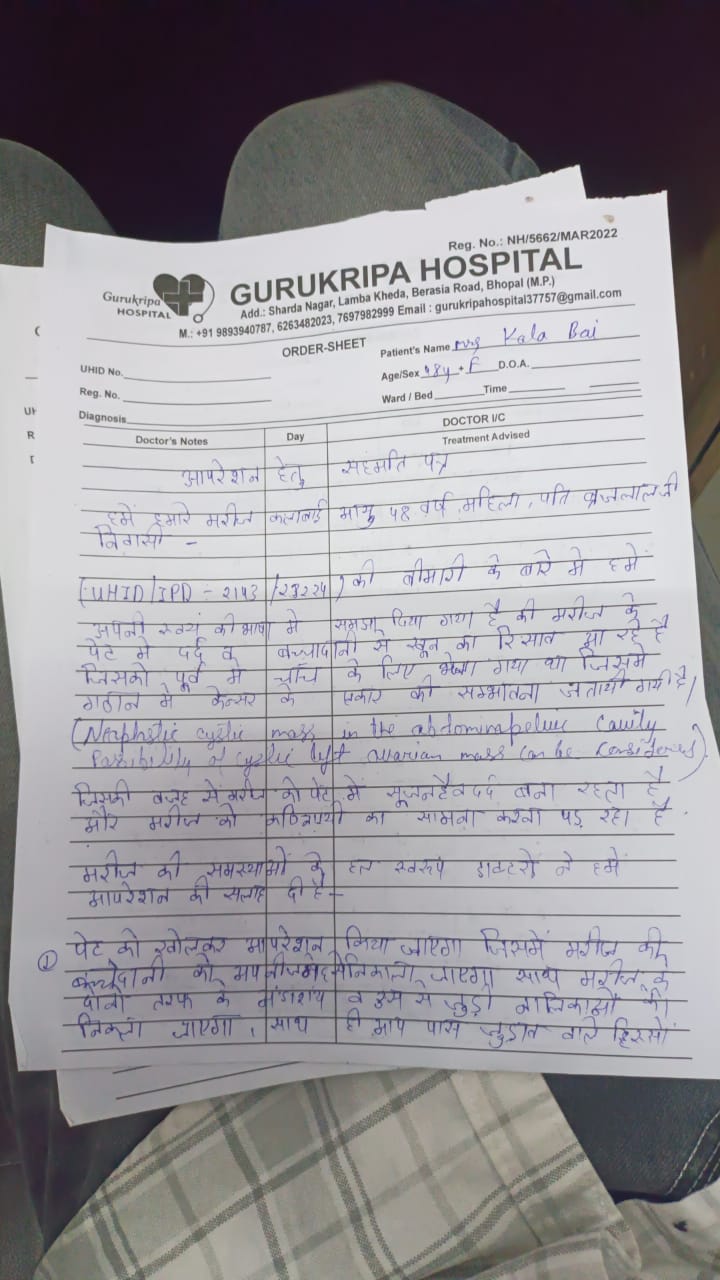 Reg. No.: NH/5662/MAR2022
Gurukripa
HOSPITAL
GURUKRIPA HOSPITAL
Add.: Sharda Nagar, Lamba Kheda, Berasia Road, Bhopal (M.P.)
M.: +91 9893940787, 6263482023, 7697982999 Email : gurukripahospital37757@gmail.com
ORDER-SHEET
Patient's Name Mrs Kala Bai
UHID No.
Age/Sex 48y + F D.O.A.
Reg. No.
Ward / Bed Time
Diagnosis
DOCTOR I/C
Doctor's Notes Day Treatment Advised
आपरेशन हेतु सहमति पत्र
हमें हमारे मरीज कलाबाई आयु 48 वर्ष, महिला, पति ब्रजलालजी
निवासी -
(UHID/IPD - 2143/23224) की बीमारी के बारे मे हमें
अपनी स्वयं की भाषा में समझा दिया गया है की मरीज के
पेट में दर्द व बच्चादानी से खून का रिसाव आ रहे है
जिसको पूर्व में जाँच के लिए भेजा गया था जिसमे
गठान में केन्सर के प्रकार की सम्भावना जतायी गयी है,
cystic mass in the abdominopelvic cavity
Possibility of cystic left ovarian mass can be considered)
जिसकी वजह से मरीज को पेट में सूजन है व दर्द बना रहता है
और मरीज को का सामना करना पड़ रहा है
मरीज की समस्याओं के हल स्वरूप डाक्टरों ने हमें
आपरेशन की सलाह दी है -
① पेट को खोलकर आपरेशन किया जाएगा जिसमें मरीज की
बच्चेदानी को निकाला जाएगा साथ मरीज के
दोनो तरफ के अंडाशय व उस से जुड़ी नालिकाओं को
निकाला जाएगा, साथ ही आप पास जुड़ाव वाले हिस्सों